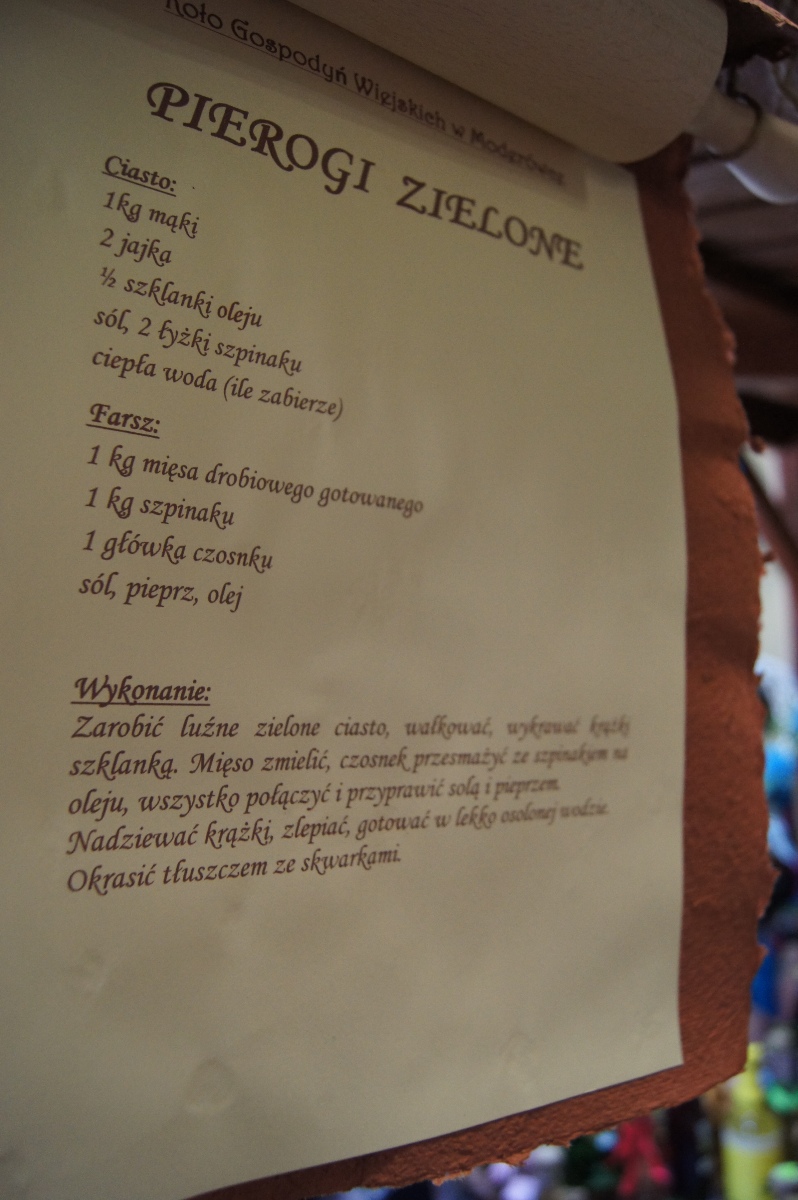 Koło Gospodyń Wiejskich w
PIEROGI ZIELONE
Ciasto:
1kg mąki
2 jajka
½ szklanki oleju
sól, 2 łyżki szpinaku
ciepła woda (ile zabierze)
Farsz:
1 kg mięsa drobiowego gotowanego
1 kg szpinaku
1 główka czosnku
sól, pieprz, olej
Wykonanie:
Zarobić luźne zielone ciasto, wałkować, wykrawać krążki
szklanką. Mięso zmielić, czosnek przesmażyć ze szpinakiem na
oleju, wszystko połączyć i przyprawić solą i pieprzem.
Nadziewać krążki, zlepiać, gotować w lekko osolonej wodzie.
Okrasić tłuszczem ze skwarkami.